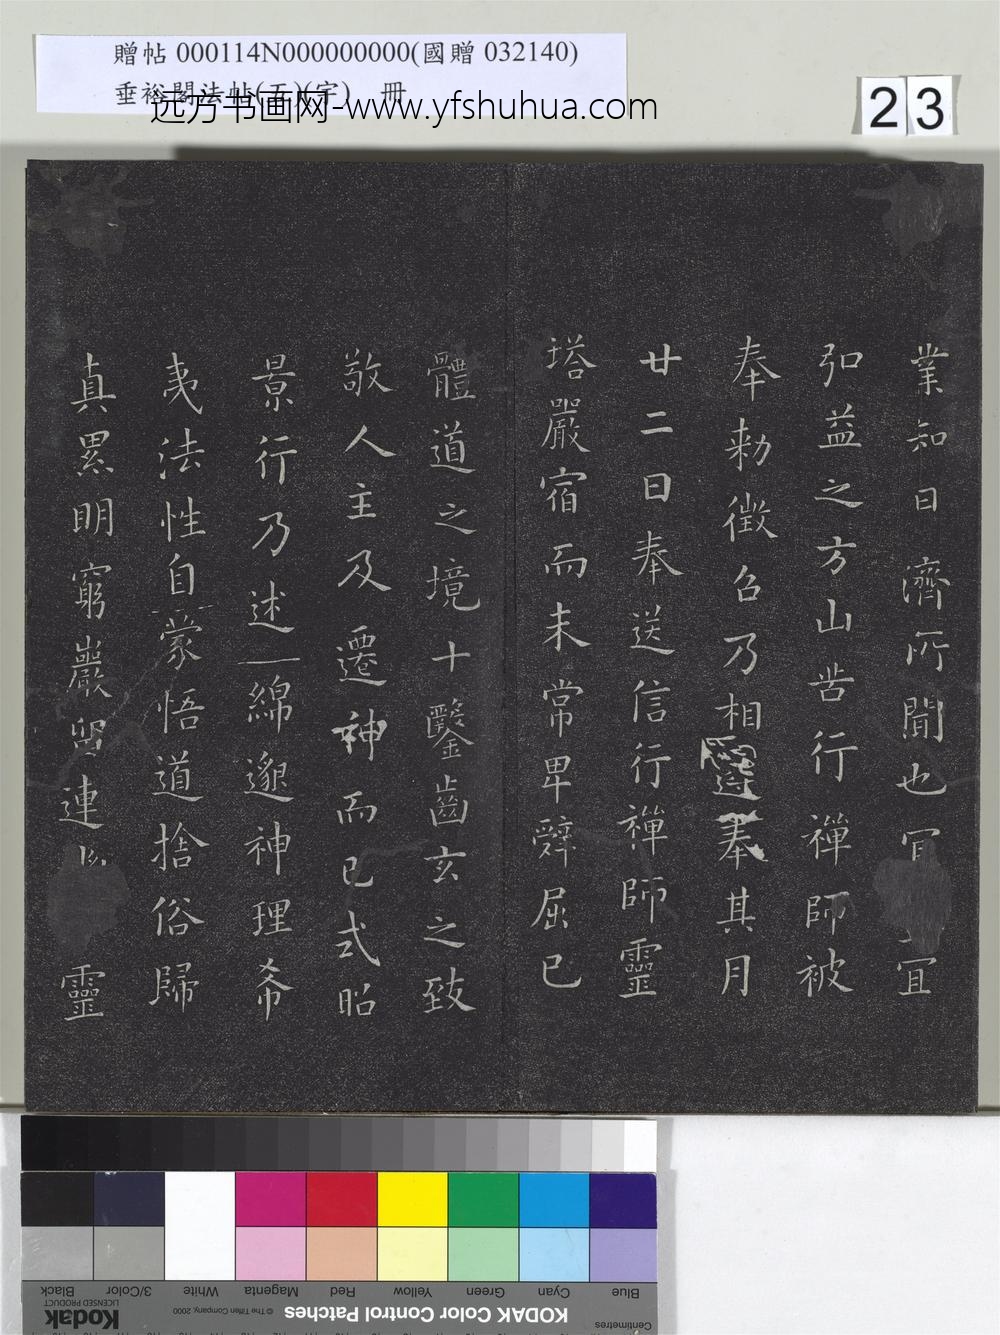 贈帖 000114N000000000(國贈 032140)
垂裕閣法帖(五)(字) 冊
远方书画网-www.yfshuhua.com
23
業知日濟所聞也宜宜
弘益之方山岩行禪師被
奉勑徵召乃相遵奉其月
廿二日奉送信行禪師靈
塔嚴宿而未常卑辭屈己
體道之境十鑿齒玄之致
敬人主及遷神而已式昭
景行乃述綿邈神理希
夷法性自蒙悟道捨俗歸
真累明窮巖留連 靈
Black
3/Color
White
Magenta
Red
Yellow
Green
Cyan
Blue
Kodak
LICENSED PRODUCT
© The Tiffen Company, 2000
KODAK Color Control Patches
Centimetres